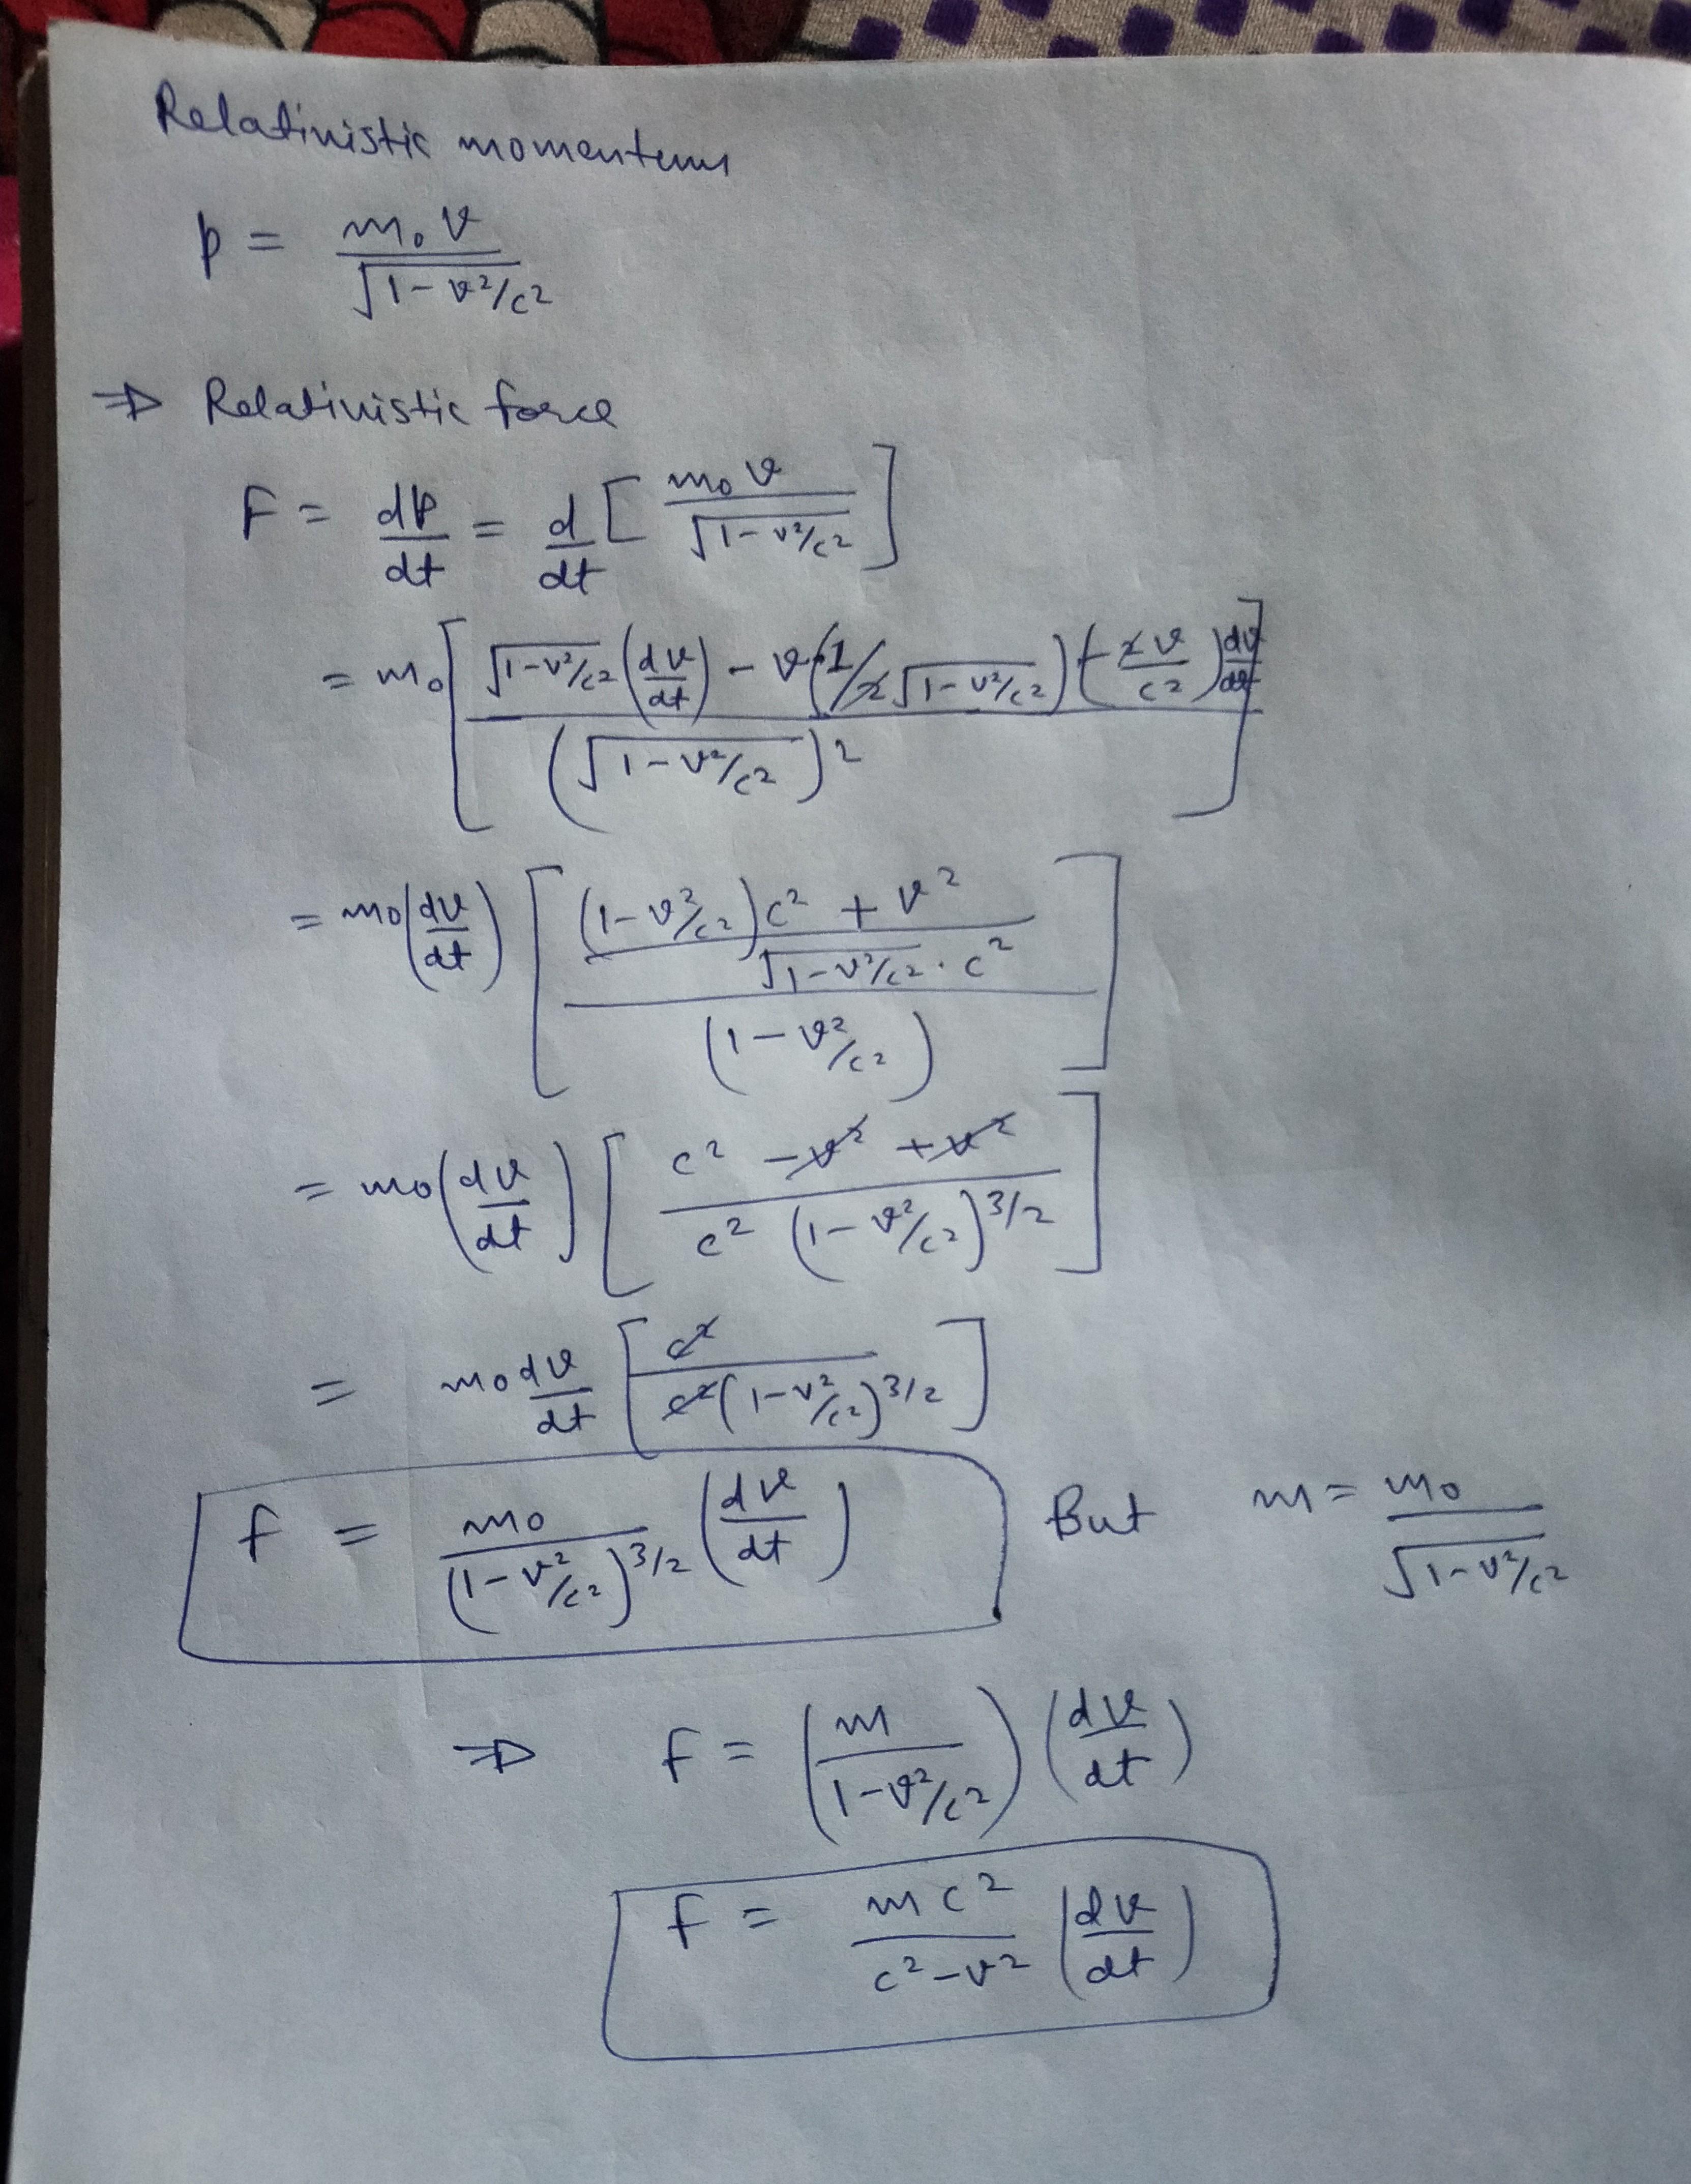 Relativistic momentum
p = m₀v / √(1-v²/c²)
⇒ Relativistic force
F = dp/dt = d/dt [ m₀v / √(1-v²/c²) ]
= m₀ [ ( √(1-v²/c²) (dv/dt) - v (1/2√(1-v²/c²)) (-2v/c²) dv/dt ) / (√(1-v²/c²))² ]
= m₀ (dv/dt) [ ( ( (1-v²/c²)c² + v² ) / ( √(1-v²/c²) · c² ) ) / (1-v²/c²) ]
= m₀ (dv/dt) [ ( c² - v² + v² ) / ( c² (1-v²/c²)^3/2 ) ]
= m₀ dv/dt [ c² / ( c² (1-v²/c²)^3/2 ) ]
F = m₀ / (1-v²/c²)^3/2 (dv/dt) But m = m₀ / √(1-v²/c²)
⇒ F = ( m / (1-v²/c²) ) (dv/dt)
F = mc² / (c²-v²) (dv/dt)